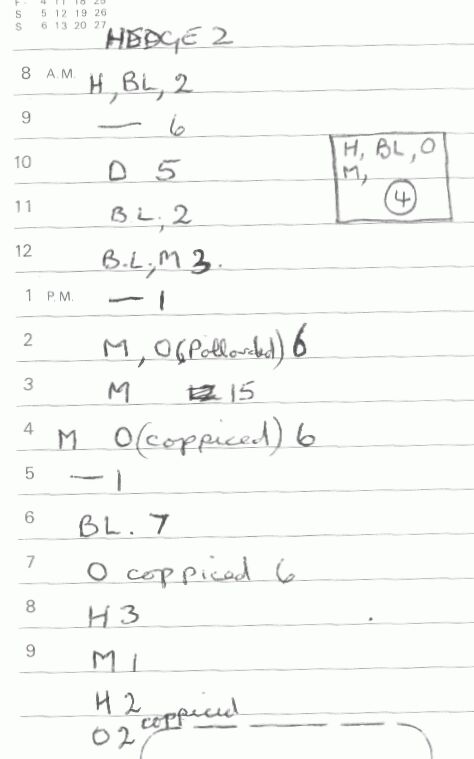 F. 4 11 18 25
S 5 12 19 26
S 6 13 20 27
HEDGE 2
8 A.M. H, BL, 2
9 — 6
10 D 5
11 BL, 2
12 B.L, M 3.
1 P.M. — 1
2 M, O (Pollarded) 6
3 M 15
4 M O (coppiced) 6
5 — 1
6 BL. 7
7 O coppiced 6
8 H 3
9 M 1
H 2
O 2 coppiced
H, BL, O
M,
4